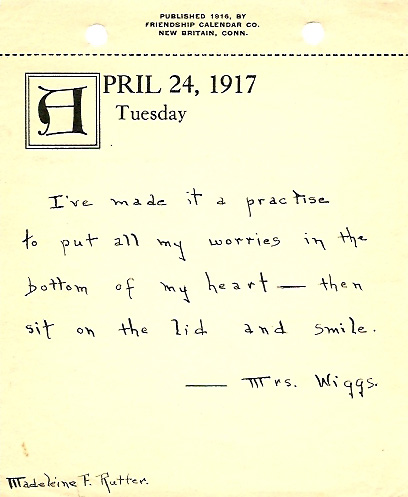 PUBLISHED 1916, BY
FRIENDSHIP CALENDAR CO.
NEW BRITAIN, CONN.
APRIL 24, 1917
Tuesday
I've made it a practise
to put all my worries in the
bottom of my heart — then
sit on the lid and smile.
— Mrs. Wiggs.
Madeleine F. Rutter.